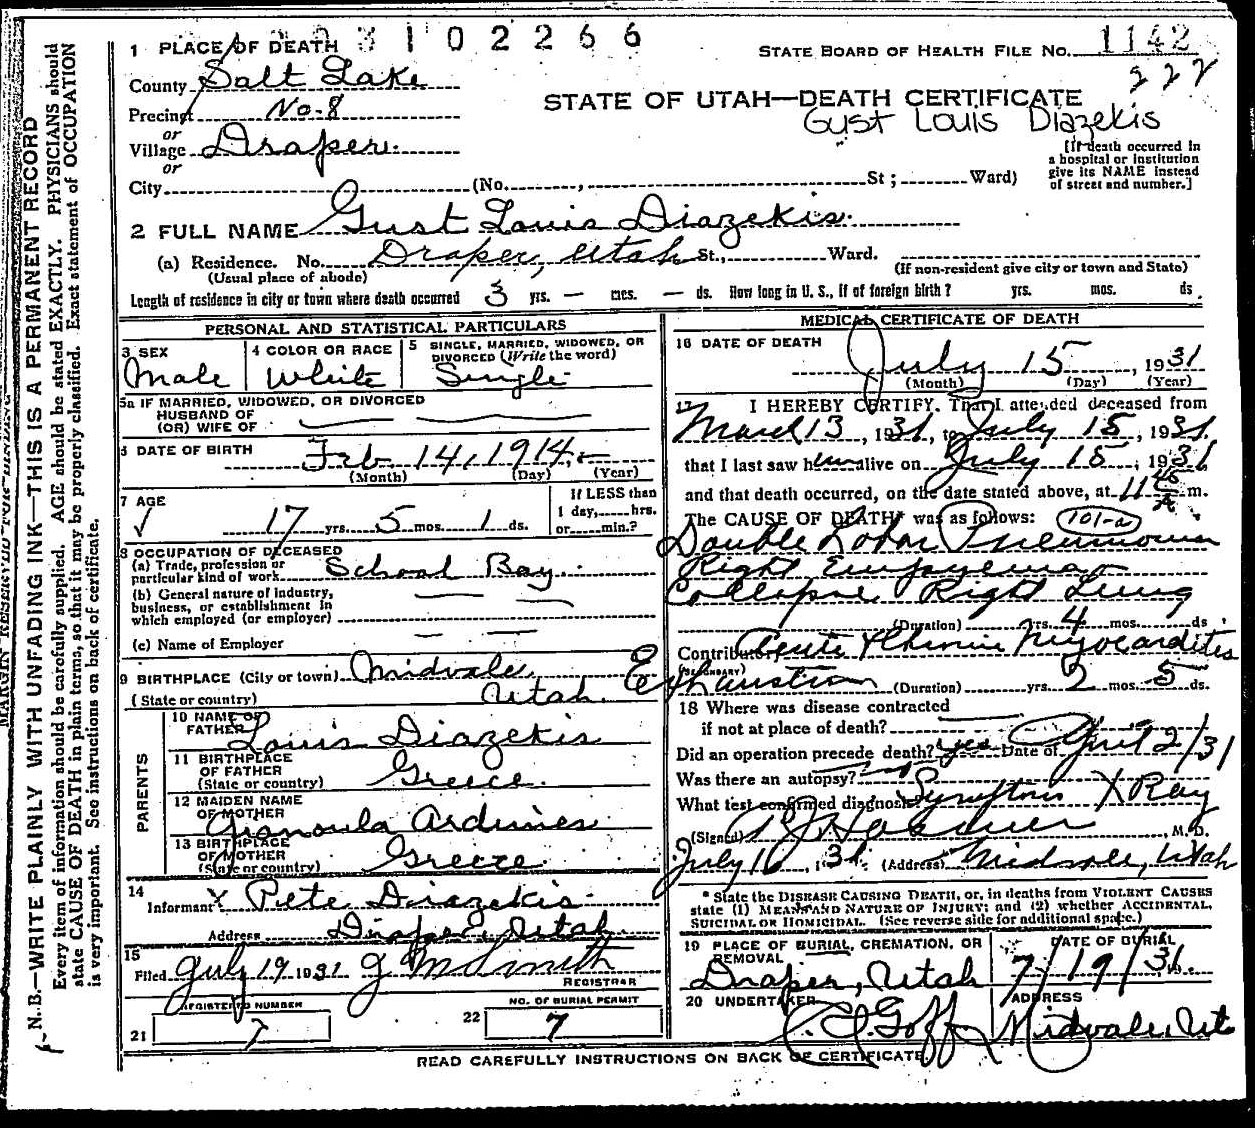 3 1 0 2 2 6 6
1 PLACE OF DEATH
STATE BOARD OF HEALTH FILE No. 1142
County Salt Lake
222
Precinct No-8
STATE OF UTAH—DEATH CERTIFICATE
or
Gust Louis Diazekis
Village Draper
or
[If death occurred in a hospital or institution give its NAME instead of street and number.]
City (No. , St ; Ward)
2 FULL NAME Gust Louis Diazekis
(a) Residence. No. Draper, Utah St., Ward.
(Usual place of abode) (If non-resident give city or town and State)
Length of residence in city or town where death occurred 3 yrs. — mos. — ds. How long in U. S., if of foreign birth? yrs. mos. ds.
PERSONAL AND STATISTICAL PARTICULARS
3 SEX Male
4 COLOR OR RACE White
5 SINGLE, MARRIED, WIDOWED, OR DIVORCED (Write the word) Single
5a IF MARRIED, WIDOWED, OR DIVORCED
HUSBAND OF
(OR) WIFE OF
6 DATE OF BIRTH Feb 14, 1914
(Month) (Day) (Year)
7 AGE 17 yrs. 5 mos. 1 ds.
If LESS than 1 day, hrs. or min.?
8 OCCUPATION OF DECEASED
(a) Trade, profession or particular kind of work School Boy
(b) General nature of industry, business, or establishment in which employed (or employer)
(c) Name of Employer
9 BIRTHPLACE (City or town) Midvale
(State or country) Utah
PARENTS
10 NAME OF FATHER Louis Diazekis
11 BIRTHPLACE OF FATHER (State or country) Greece
12 MAIDEN NAME OF MOTHER Gianoula
13 BIRTHPLACE OF MOTHER (State or country) Greece
14 Informant X Pete Diazekis
Address Draper, Utah
15 Filed July 19 1931 J M Smith
REGISTRAR
REGISTERED NUMBER
21 7
NO. OF BURIAL PERMIT
22 7
MEDICAL CERTIFICATE OF DEATH
16 DATE OF DEATH
July 15, 1931
(Month) (Day) (Year)
17 I HEREBY CERTIFY, That I attended deceased from
March 13, 1931, to July 15, 1931
that I last saw him alive on July 15, 1931,
and that death occurred, on the date stated above, at 11 45 A m.
The CAUSE OF DEATH* was as follows: 101-a
Double Lobar Pneumonia
Right Empyema
Collapse Right Lung
(Duration) yrs. 4 mos. ds.
Contributory Acute & Chronic Myocarditis
(SECONDARY)
Exhaustion (Duration) yrs. 2 mos. 5 ds.
18 Where was disease contracted
if not at place of death?
Did an operation precede death? yes Date of April 2/31
Was there an autopsy? no
What test confirmed diagnosis? Symptoms X Ray
(Signed) , M. D.
July 16, 1931 (Address) Midvale, Utah
* State the DISEASE CAUSING DEATH, or, in deaths from VIOLENT CAUSES
state (1) MEANS AND NATURE OF INJURY; and (2) whether ACCIDENTAL,
SUICIDAL OR HOMICIDAL. (See reverse side for additional space.)
19 PLACE OF BURIAL, CREMATION, OR REMOVAL Draper, Utah
DATE OF BURIAL 7/19/31
20 UNDERTAKER Goff
ADDRESS Midvale, Ut
READ CAREFULLY INSTRUCTIONS ON BACK OF CERTIFICATE.
MARGIN RESERVED FOR BINDING
N. B.—WRITE PLAINLY WITH UNFADING INK—THIS IS A PERMANENT RECORD
Every item of information should be carefully supplied. AGE should be stated EXACTLY. PHYSICIANS should
state CAUSE OF DEATH in plain terms, so that it may be properly classified. Exact statement of OCCUPATION
is very important. See instructions on back of certificate.